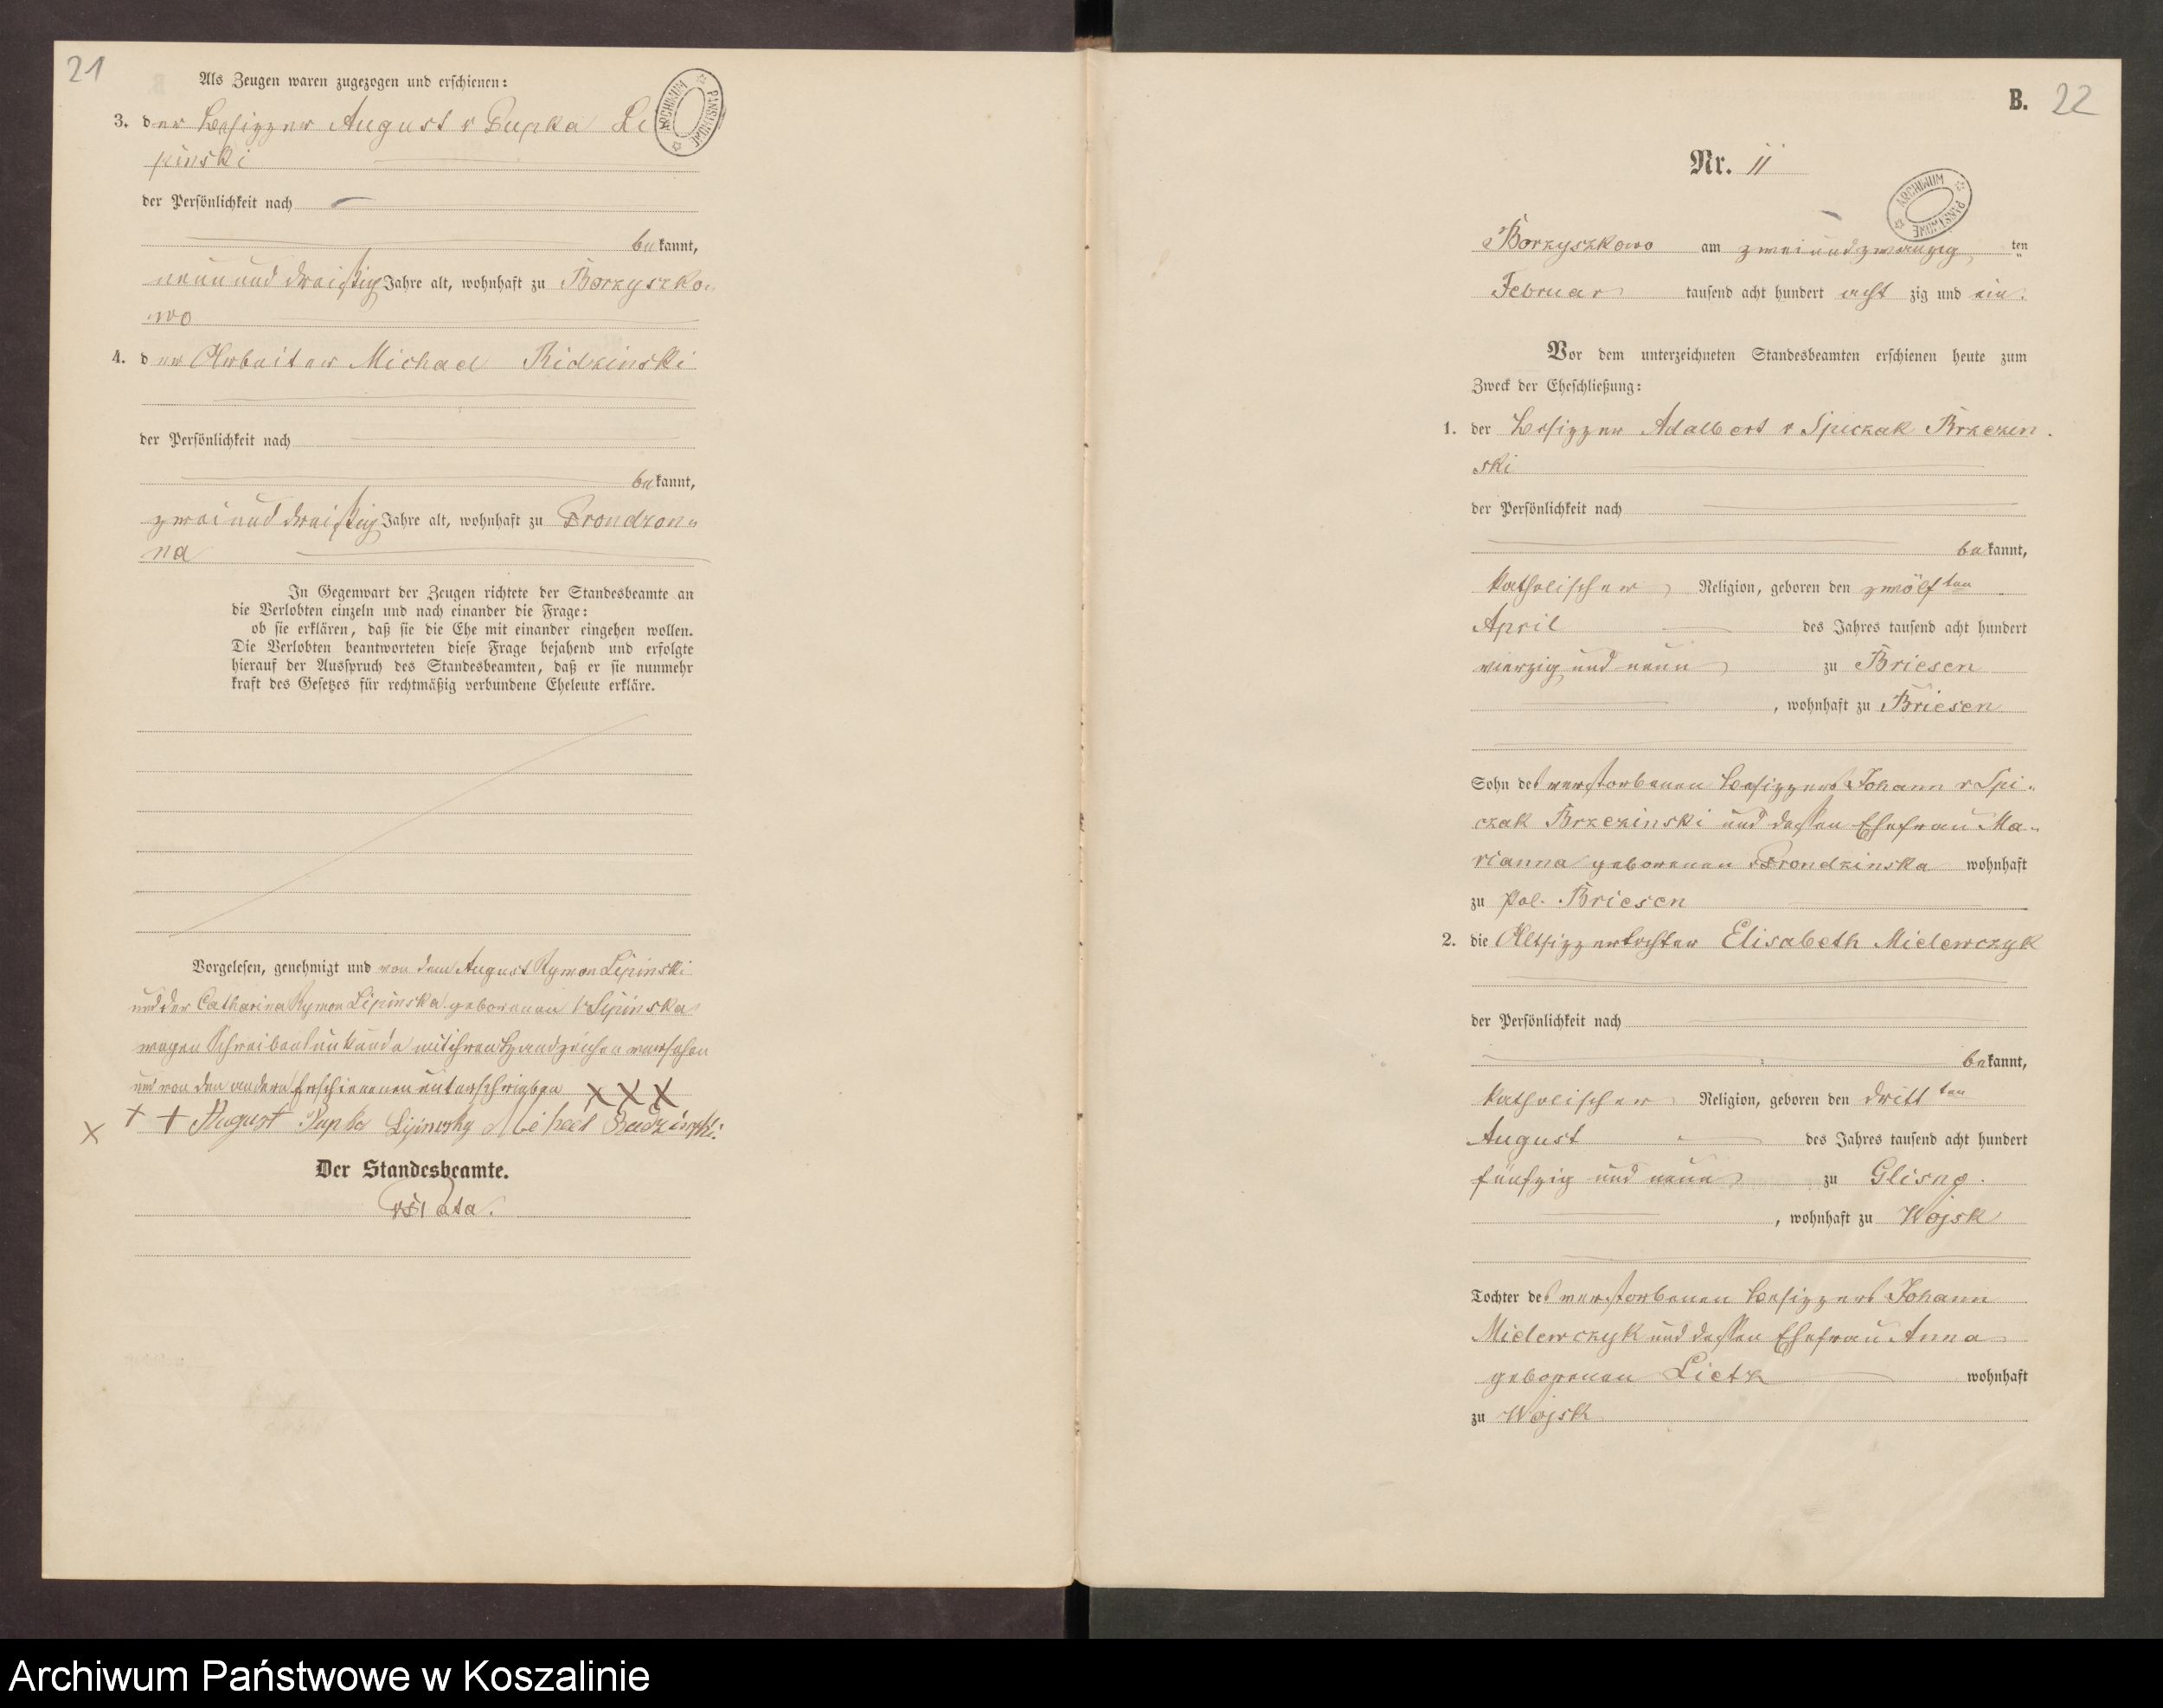 21
Als Zeugen waren zugezogen und erschienen:
3. der Besitzer August v Pupka Li
pinski
der Persönlichkeit nach
bekannt,
neun und dreißig Jahre alt, wohnhaft zu Borzyszko„
wo
4. der Arbeiter Michael Ridzinski
der Persönlichkeit nach
bekannt,
zwei und dreißig Jahre alt, wohnhaft zu Prondzon„
na
In Gegenwart der Zeugen richtete der Standesbeamte an
die Verlobten einzeln und nach einander die Frage:
ob sie erklären, daß sie die Ehe mit einander eingehen wollen.
Die Verlobten beantworteten diese Frage bejahend und erfolgte
hierauf der Ausspruch des Standesbeamten, daß er sie nunmehr
kraft des Gesetzes für rechtmäßig verbundene Eheleute erkläre.
Vorgelesen, genehmigt und von dem August Rymon Lipinski
und der Catharina Rymon Lipinska geborenen v Lipinska
wegen Schreibensunkunde mit ihren Handzeichen versehen
und von den andern Erschienenen unterschrieben X X X
X + + August Pupka Lipinsky Michael
Der Standesbeamte.
ARCHIWUM PAŃSTWOWE
B. 22
Nr. 11
ARCHIWUM PAŃSTWOWE
Borzyszkowo am zwei und zwanzig ten
Februar tausend acht hundert acht zig und ein.
Vor dem unterzeichneten Standesbeamten erschienen heute zum
Zweck der Eheschließung:
1. der Besitzer Adalbert v Spiczak Brzezin
ski
der Persönlichkeit nach
bekannt,
katholischer Religion, geboren den zwölf ten
April des Jahres tausend acht hundert
vierzig und neun zu Briesen
, wohnhaft zu Briesen
Sohn des verstorbenen Besitzers Johann v Spi„
czak Brzezinski und dessen Ehefrau Ma„
rianna geborenen v Prondzinska wohnhaft
zu Pol. Briesen
2. die Altsitzertochter Elisabeth Mielewczyk
der Persönlichkeit nach
bekannt,
katholischer Religion, geboren den dritt ten
August des Jahres tausend acht hundert
fünfzig und neun zu Glisno.
, wohnhaft zu Wojsk
Tochter des verstorbenen Besitzers Johann
Mielewczyk und dessen Ehefrau Anna
geborenen Lietz wohnhaft
zu Wojsk
Archiwum Państwowe w Koszalinie